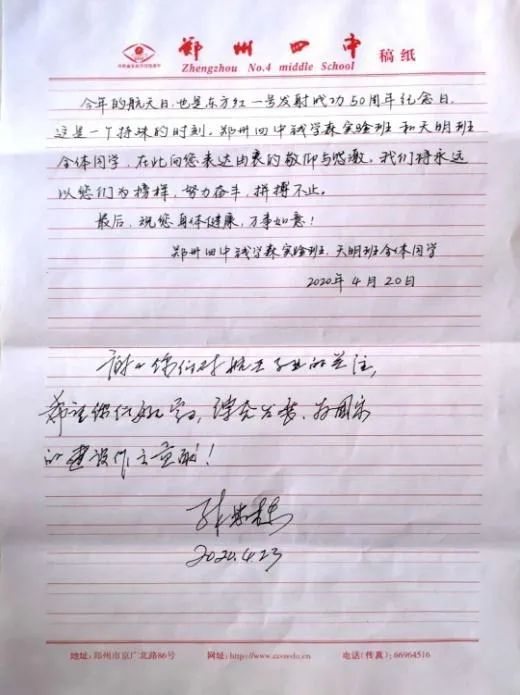 郑州四中 稿纸
Zhengzhou No.4 middle School
今年的航天日,也是东方红一号发射成功50周年纪念日。
这是一个特殊的时刻。郑州四中钱学森实验班和天明班
全体同学,在此向您表达由衷的敬仰与感激。我们将永远
以您们为榜样,努力奋斗,拼搏不止。
最后,祝您身体健康,万事如意!
郑州四中钱学森实验班、天明班全体同学
2020年4月20日
谢谢你们对航天事业的关注,
希望你们好好学习,
的建设作出贡献!
2020.4.23
地址:郑州市京广北路86号 网址:http://www.zzsz.edu.cn 电话(传真):66964516